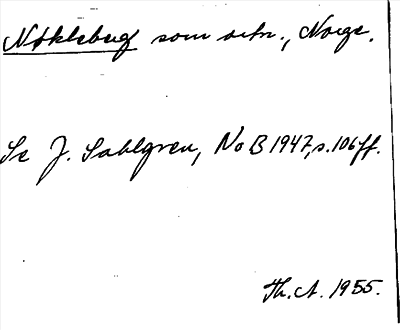 Nökleberg som ortn., Norge.
Se J. Sahlgren, NoB 1947, s. 106 ff.
Th. A. 1955.